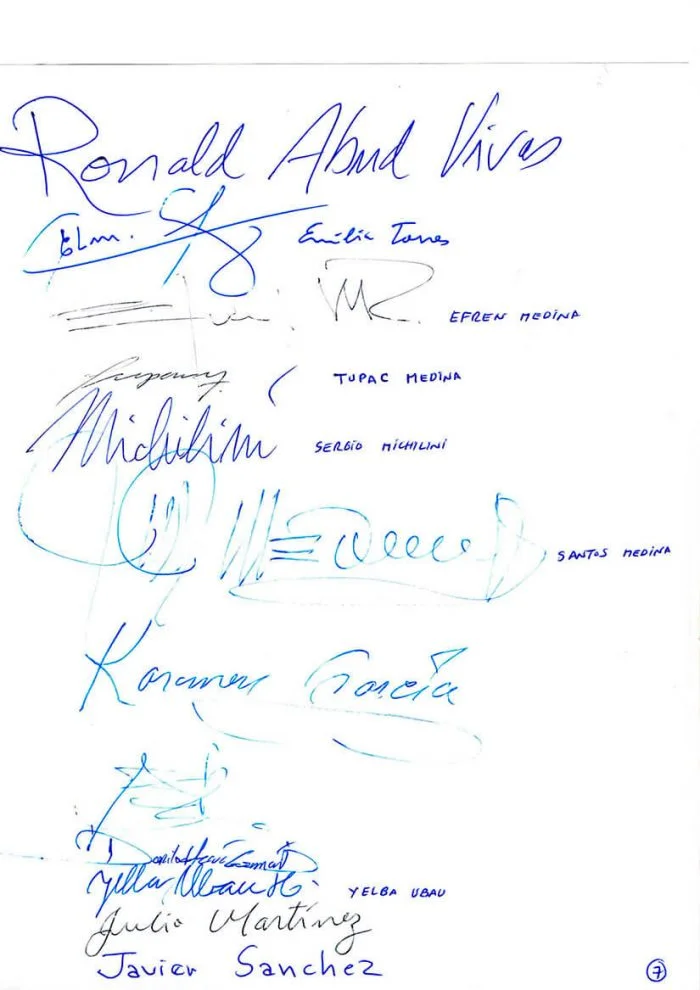 Ronald Abud Vivas
Elm. Emilia Torres
EFREN MEDINA
TUPAC MEDINA
Michilini SERGIO MICHILINI
SANTOS MEDINA
García
Yelba Ubau YELBA UBAU
Julio Martínez
Javier Sanchez
7